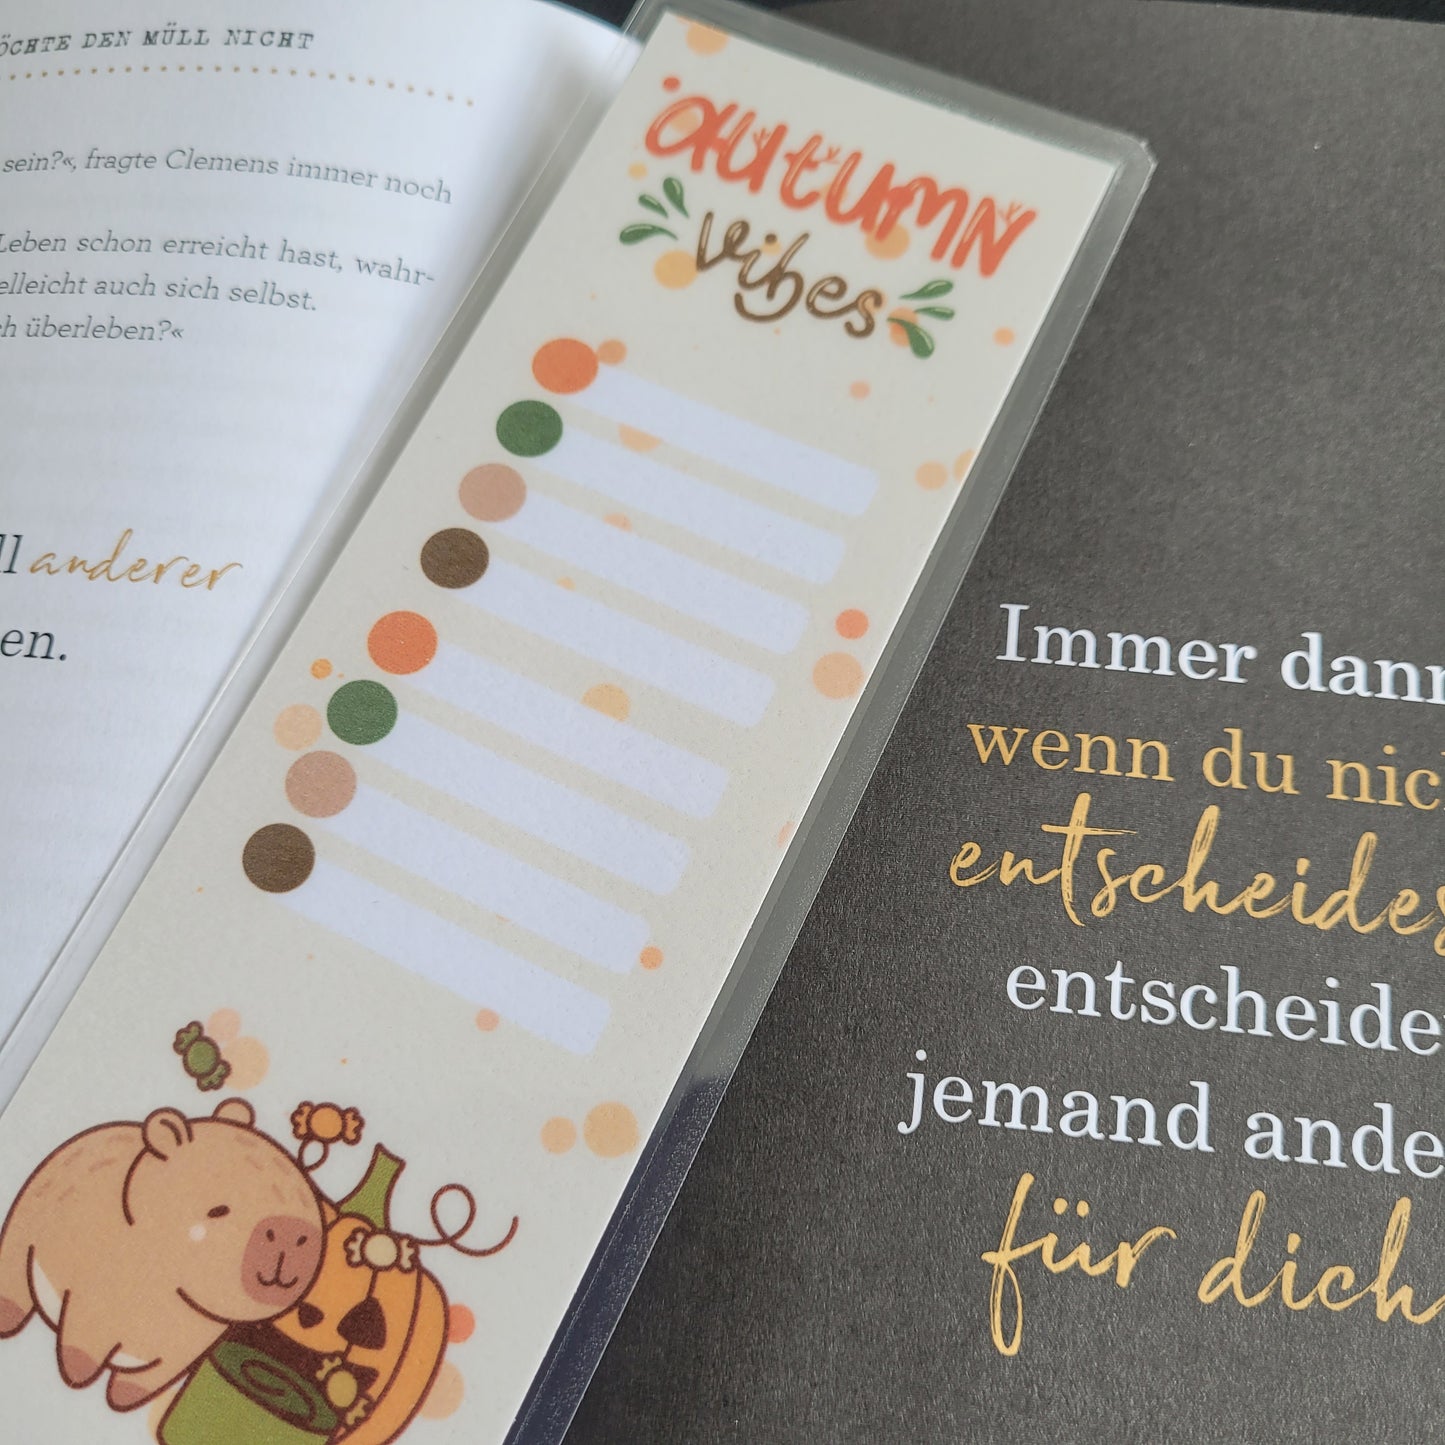 DEN MÜLL NICHT
sein?«, fragte Clemens immer noch
Leben schon erreicht hast, wahr-
auch sich selbst.
überleben?«
anderer
AUTUMN
vibes
Immer dann
wenn du
entscheides
entscheide
jemand ande
für dich